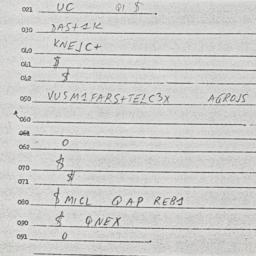 021 UC QI $
030 DAS+1K
040 KNEJC+
041 $
042 $
050 VUSM1FARS+TELC3X AGROJS
060
061
062 0
070 $
071 $
080 $MICL QAP REB1
090 $ QNEX
091 0